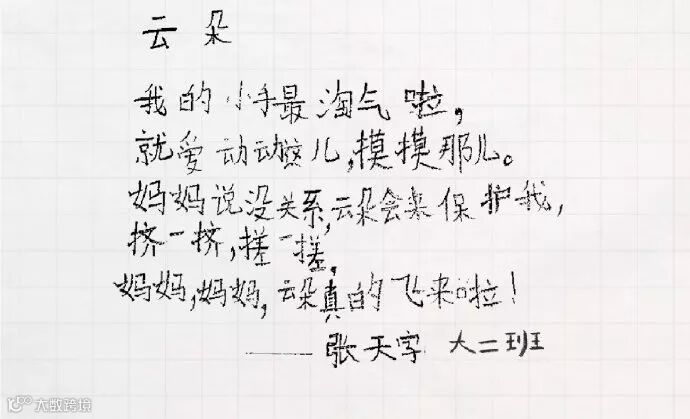 云朵
我的小手最淘气啦，
就爱动动这儿，摸摸那儿。
妈妈说没关系，云朵会来保护我，
挤一挤，搓一搓，
妈妈，妈妈，云朵真的飞来啦！
——张天字 大二班
大数跨境